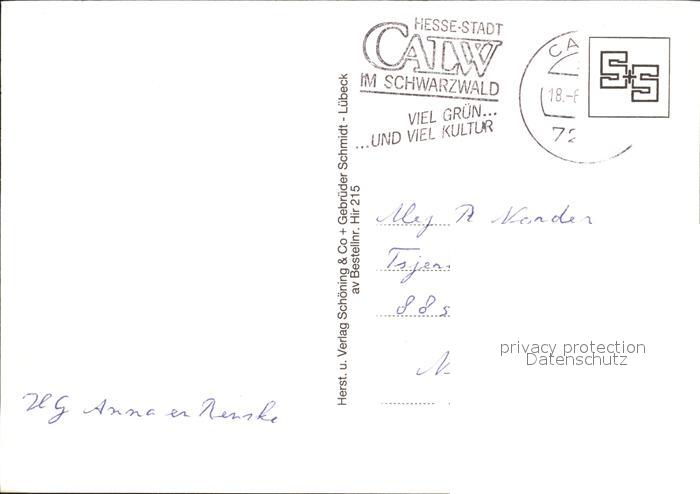 HESSE-STADT
CALW
IM SCHWARZWALD
VIEL GRÜN...
...UND VIEL KULTUR
CA
18.-
72
S+S
Herst. u. Verlag Schöning & Co + Gebrüder Schmidt - Lübeck
av Bestellnr. Hir 215
Mej R Nander
Tsjer
88s
N
privacy protection
Datenschutz
HG Anna en Renske